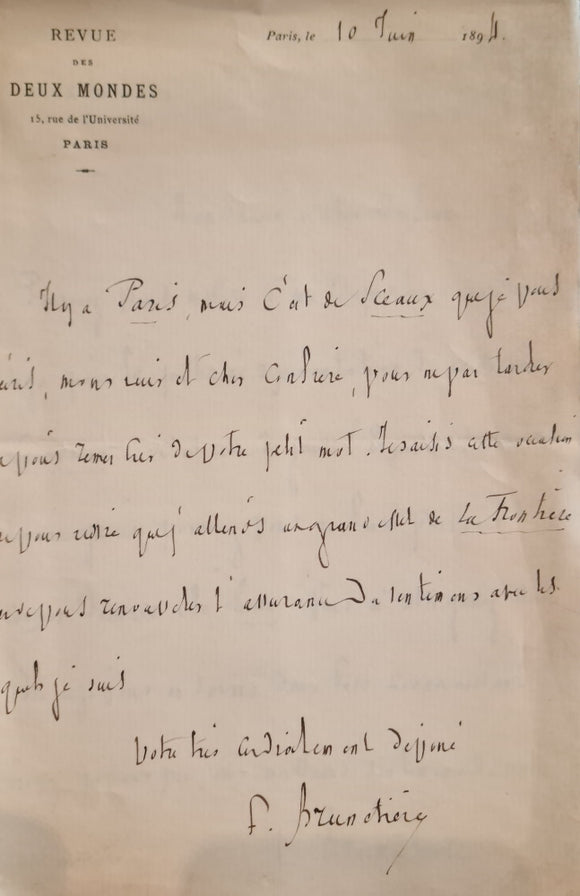 REVUE
DES
DEUX MONDES
15, rue de l'Université
PARIS
Paris, le 10 Juin 1894.
Il y a Paris, mais c'est de Sceaux que je vous
écris, mons et cher Confrère, pour ne pas tarder
vous remercier de votre petit mot. Je saisis cette occasion
vous redire que j'attends un grand effet de La Frontière
vous renouveler l'assurance des sentimens avec les
quels je suis
Votre très cordialement dévoué
F. Brunetière